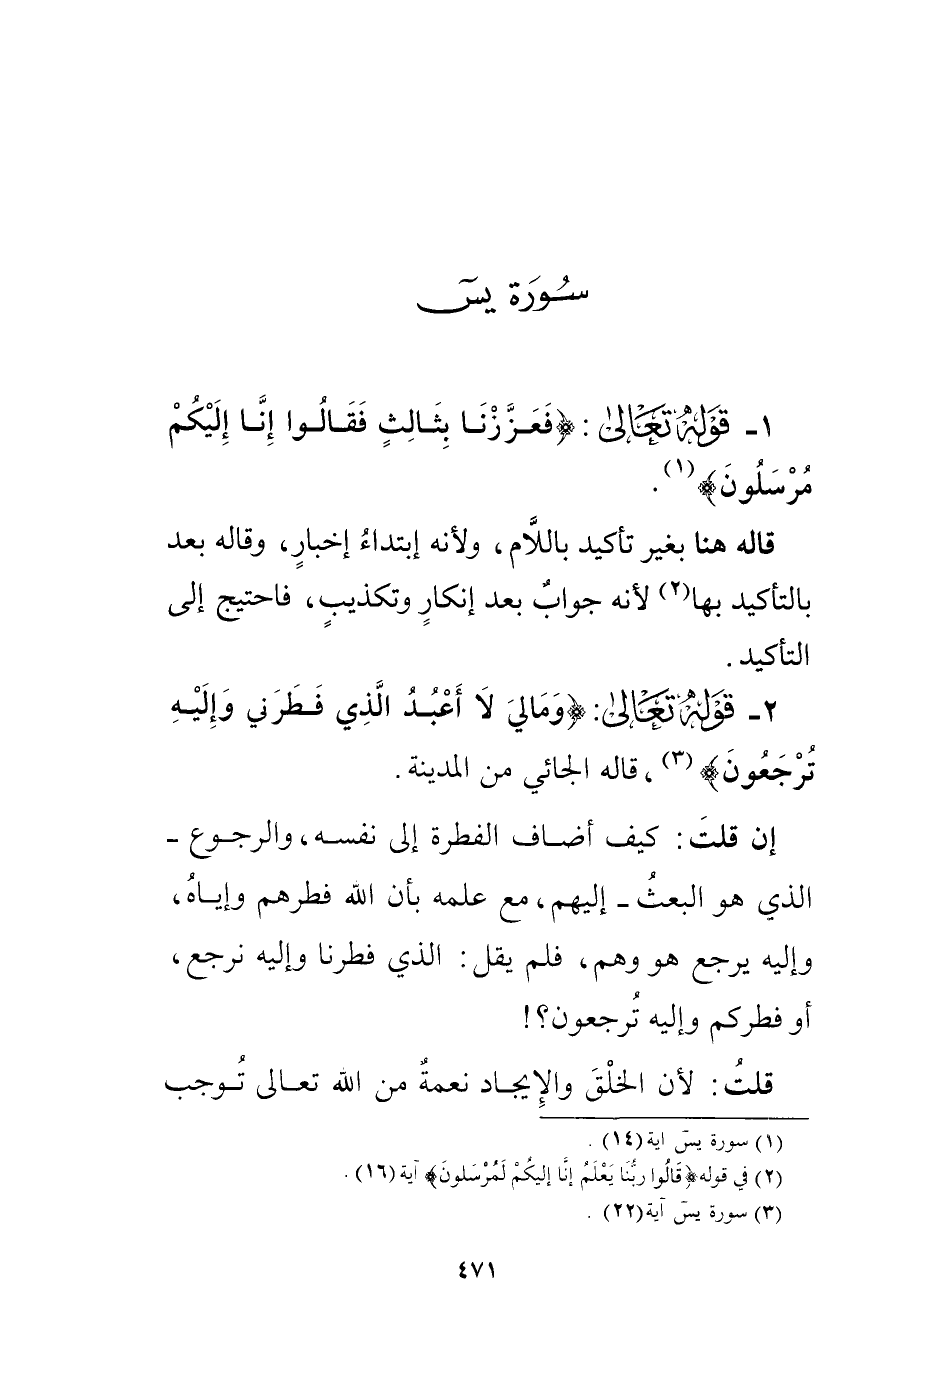 سُورَة يسٓ
١ـ قَوْلُهُ تَعَالىٰ : ﴿فَعَـزَّزْنَـا بِثَـالِثٍ فَقَـالُـوا إِنَّـا إِلَيْكُمْ
مُرْسَلُونَ﴾(١) .
قاله هنا بغير تأكيد باللَّام، ولأنه إبتداءُ إخبارٍ، وقاله بعد
بالتأكيد بها(٢) لأنه جوابٌ بعد إنكارٍ وتكذيبٍ، فاحتيج إلى
التأكيد .
٢ـ قَوْلُهُ تَعَالىٰ: ﴿وَمَالِيَ لَا أَعْبُـدُ الَّذِي فَـطَرَني وَإِلَيْـهِ
تُرْجَعُونَ﴾(٣) ، قاله الجائي من المدينة .
إن قلتَ : كيف أضـاف الفطرة إلى نفسـه، والرجـوع ـ
الذي هو البعثُ ـ إليهم، مع علمه بأن الله فطرهم وإيـاهُ،
وإليه يرجع هو وهم، فلم يقل : الذي فطرنا وإليه نرجع،
أو فطركم وإليه تُرجعون؟!
قلتُ : لأن الخلْقَ والإِيجـاد نعمةٌ من الله تعـالى تُـوجب
(١) سورة يسٓ اية (١٤) .
(٢) في قوله ﴿قَالُوا ربُّنَا يَعْلَمُ إنَّا إليكُمْ لَمُرْسَلونَ﴾ آية (١٦) .
(٣) سورة يسٓ آية (٢٢) .
٤٧١